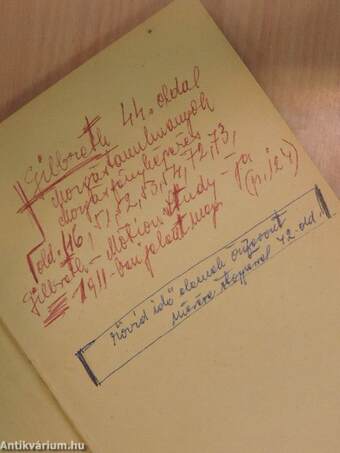 Gilbreth 44. oldal
Mozgástanulmányok
Mozgásfényképezés
old. 46, 51, 52, 53, 54, 72, 73,
Gilbreth – Motion Study – ja (p. 124)
1911-ben jelent meg
Rövid idő elemek
mérése stopperrel 42. old.
Antikvárium.hu